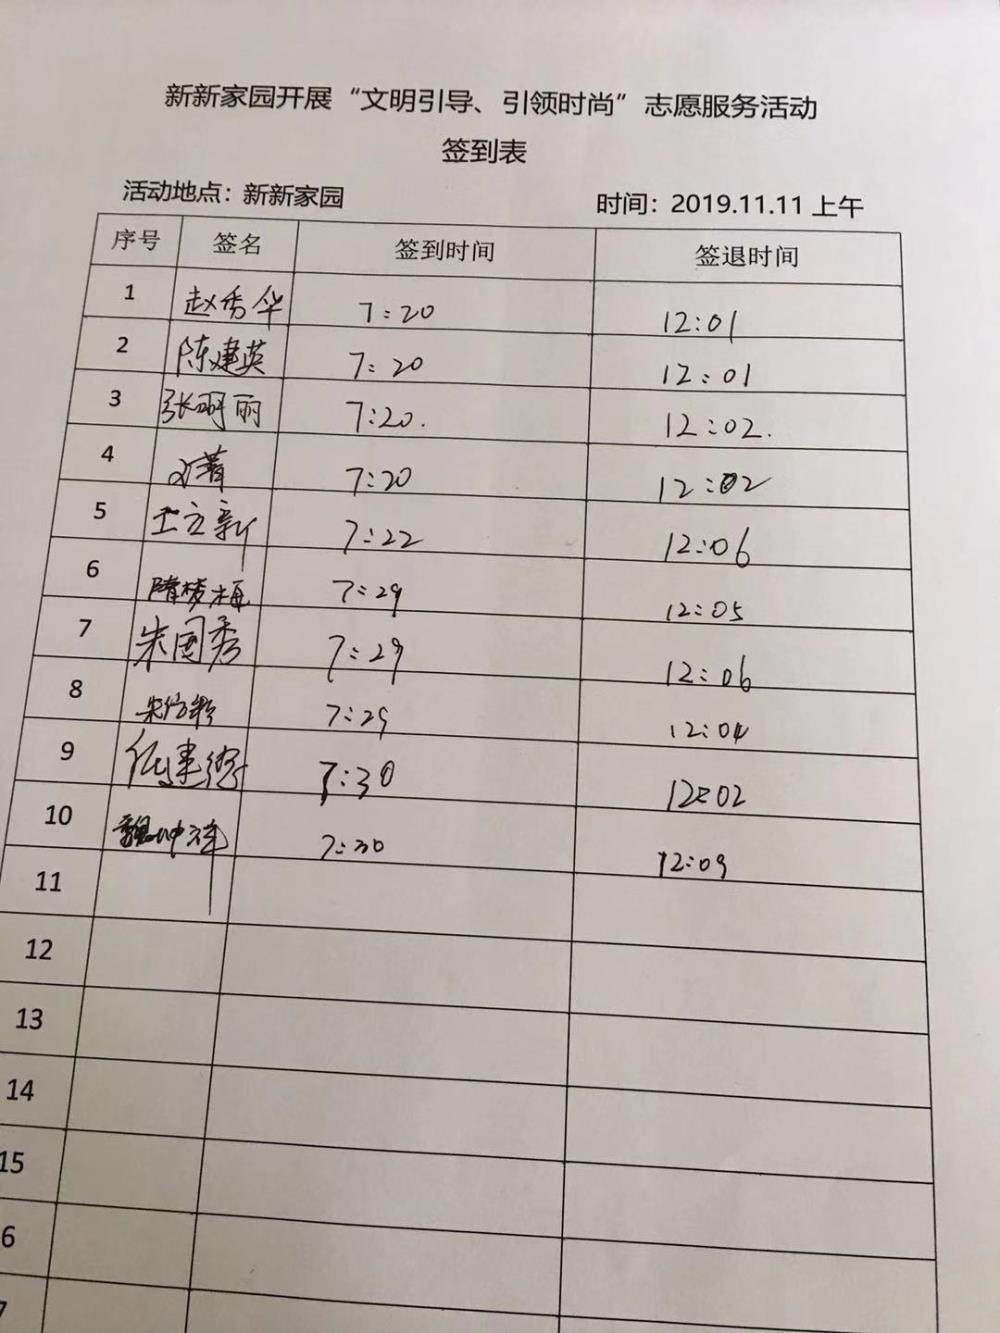 新新家园开展“文明引导、引领时尚”志愿服务活动
签到表
活动地点：新新家园 时间：2019.11.11 上午
序号 签名 签到时间 签退时间
1 赵秀华 7:20 12:01
2 陈建英 7:20 12:01
3 张明丽 7:20. 12:02.
4 7:20 12:02
5 王立新 7:22 12:06
6 隋梦梅 7:29 12:05
7 朱国秀 7:29 12:06
8 7:29 12:04
9 7:30 12:02
10 7:30 12:09
11
12
13
14
15
6
7